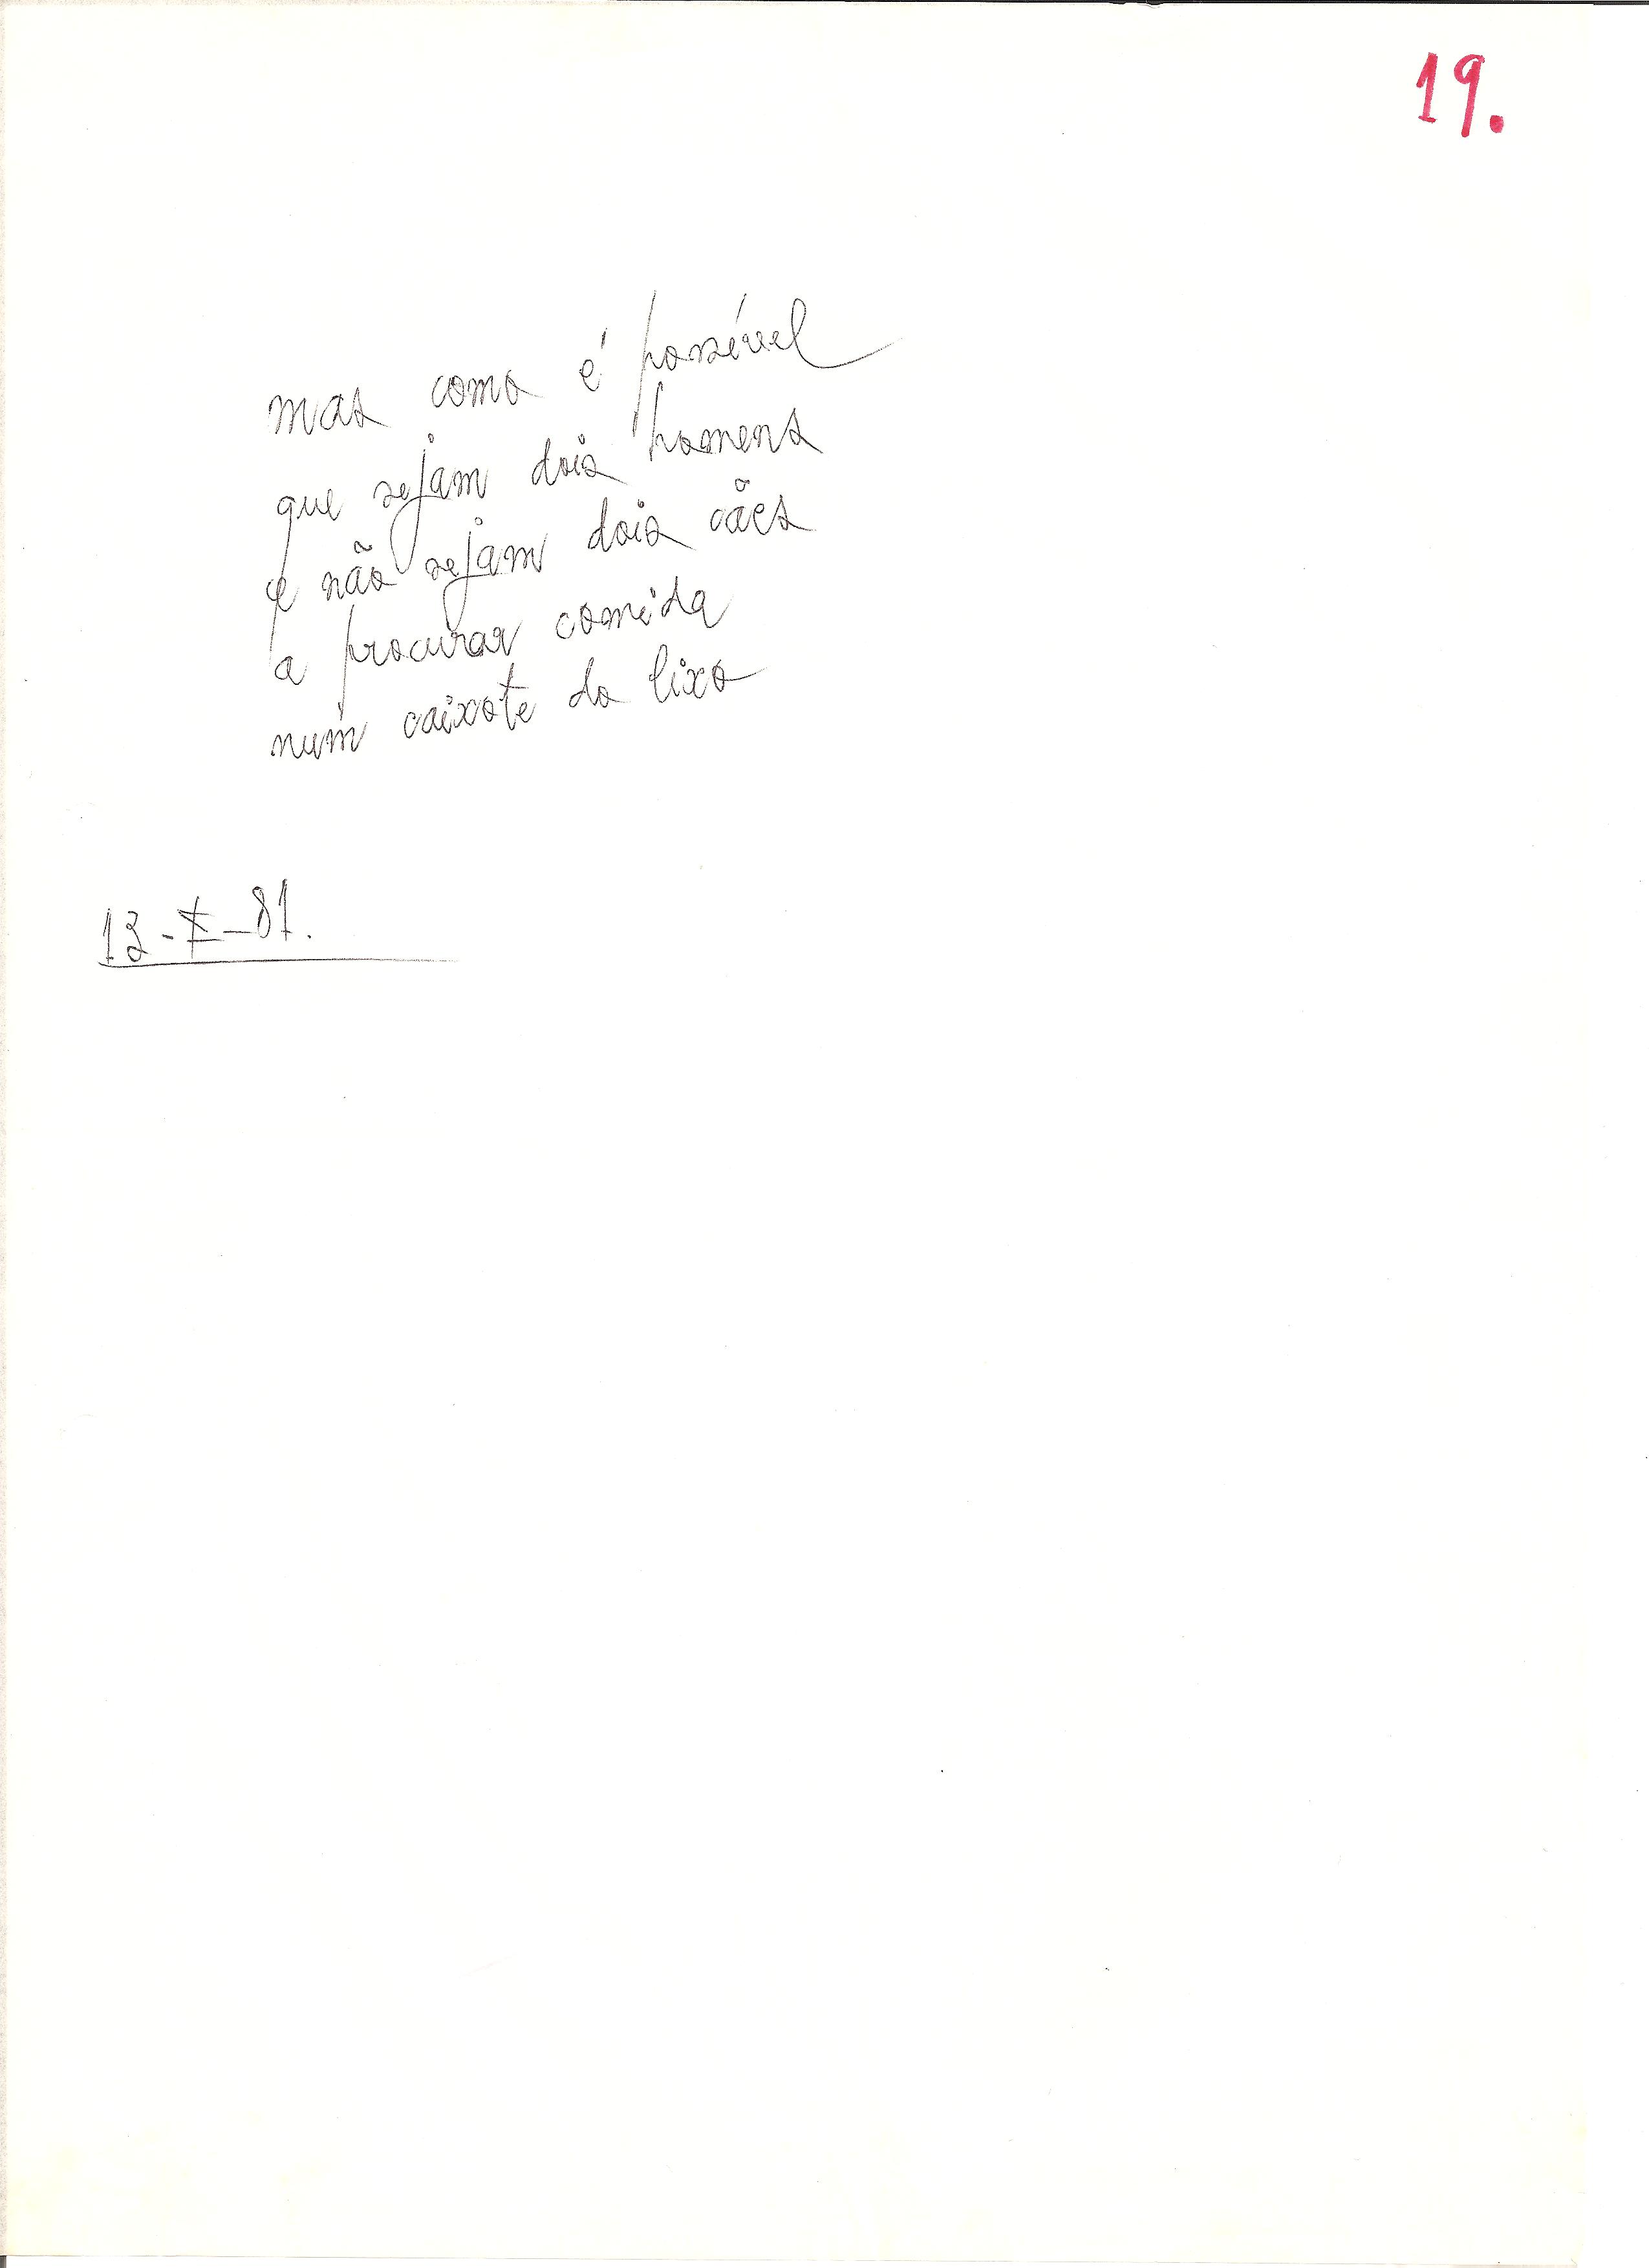 19.
mas como é possível
que sejam dois homens
e não sejam dois cães
a procurar comida
num caixote do lixo
13-X-81.